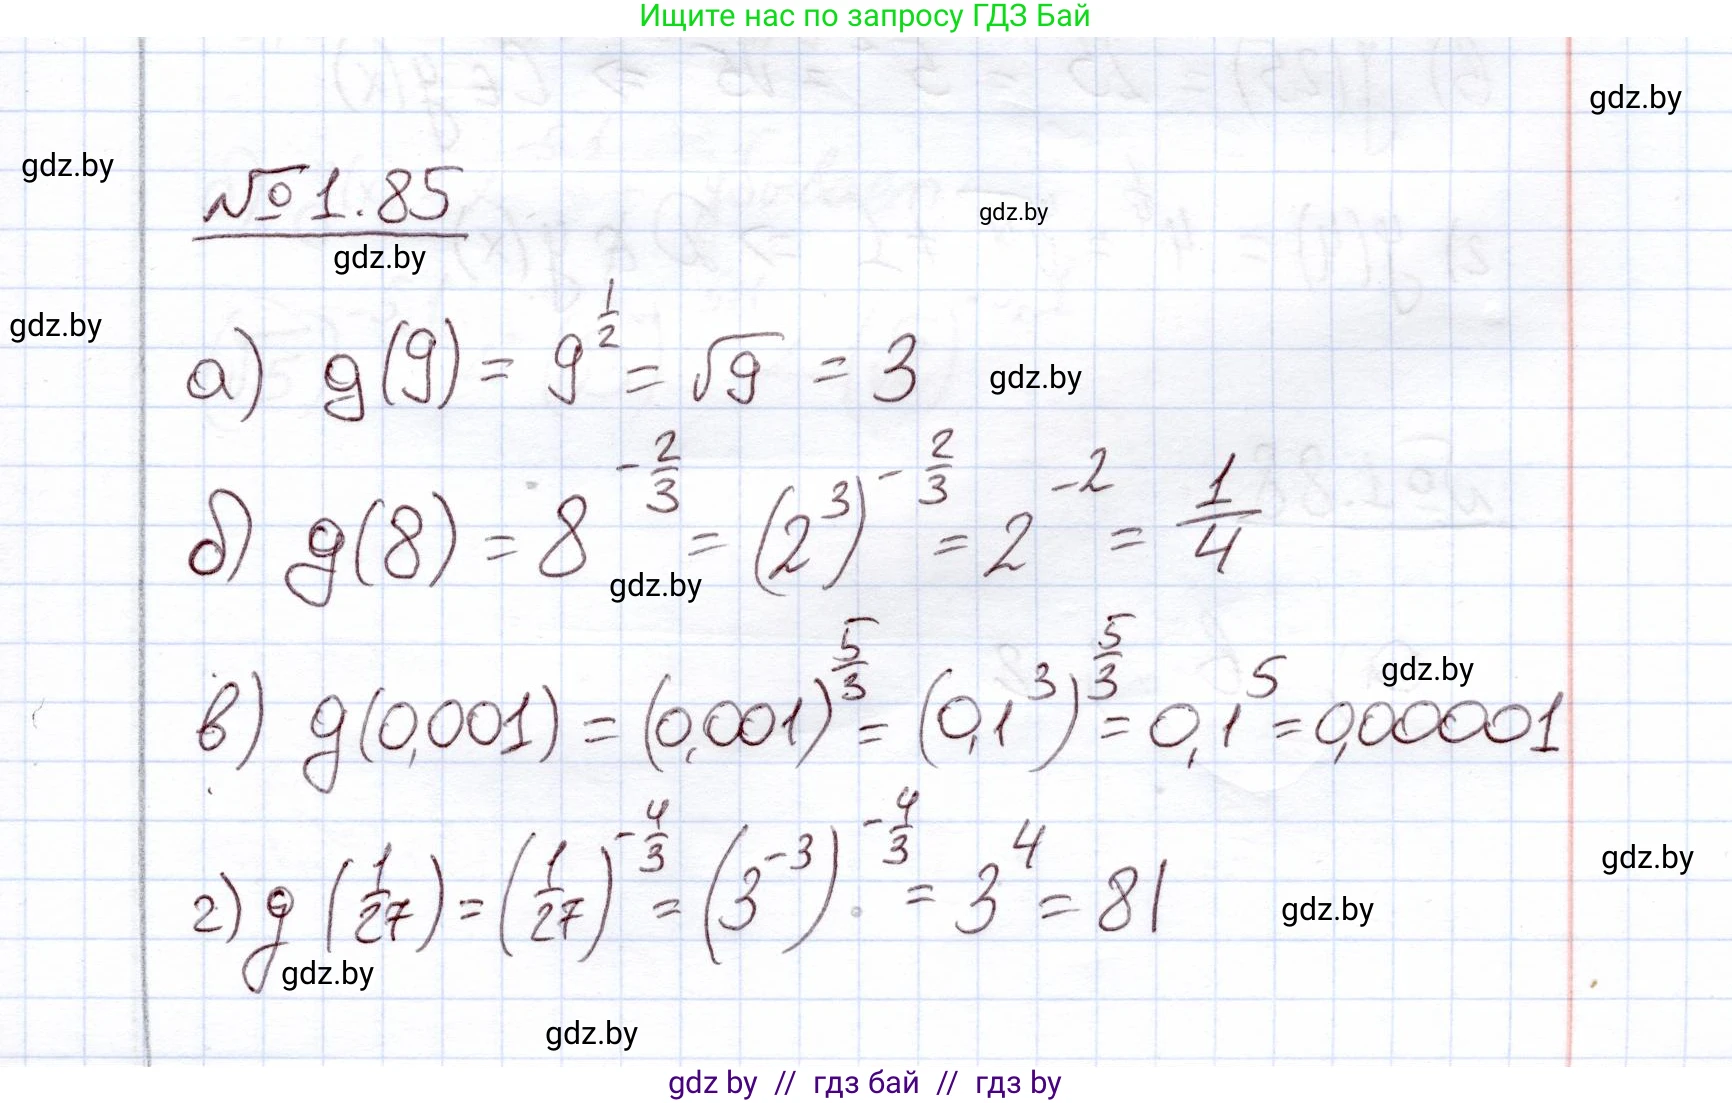 Ищите нас по запросу ГДЗ Бай
gdz.by
gdz.by
№ 1.85
gdz.by
gdz.by
gdz.by
а) g(9) = 9^{1/2} = √9 = 3
gdz.by
б) g(8) = 8^{-2/3} = (2^3)^{-2/3} = 2^{-2} = 1/4
gdz.by
gdz.by
в) g(0,001) = (0,001)^{5/3} = (0,1^3)^{5/3} = 0,1^5 = 0,00001
г) g(1/27) = (1/27)^{-4/3} = (3^{-3})^{-4/3} = 3^4 = 81
gdz.by
gdz.by
gdz.by
gdz.by
gdz by // гдз бай // гдз by